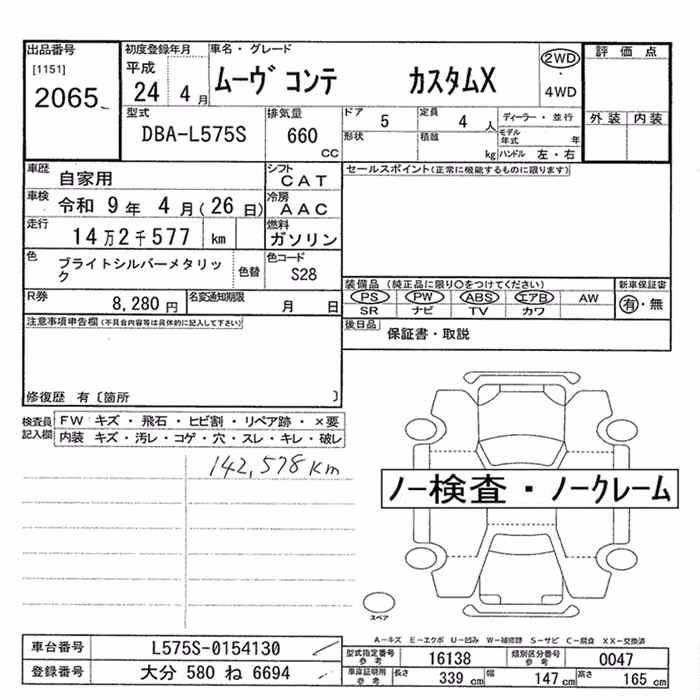 出品番号 初度登録年月 車名・グレード 2WD 評価点
[1151] 平成 ムーヴ コンテ カスタムX ・
2065 24 4月 4WD
型式 排気量 ドア 5 定員 4人 ディーラー・並行 外装 内装
DBA-L575S 660 CC 形状 積載 kg モデル年式 年
ハンドル 左・右
車歴 自家用 シフト CAT セールスポイント(正常に機能するものに限ります)
車検 令和 9年 4月(26日) 冷房 AAC
走行 14万2千577 km 燃料 ガソリン
色 ブライトシルバーメタリック 色替 色コード S28
装備品(純正品に限り○をつけてください) 新車保証書
R券 8,280円 名変通知期限 月 日 PS PW ABS エアB AW 有・無
SR ナビ TV カワ
注意事項申告欄(不具合内容等は具体的に記入して下さい) 後日品 保証書・取説
修復歴 有〔箇所 〕
検査員記入欄 FW キズ・飛石・ヒビ割・リペア跡・×要
内装 キズ・汚レ・コゲ・穴・スレ・キレ・破レ
142,578km
ノー検査・ノークレーム
スペア
A-キズ E-エクボ U-凹み W-補修跡 S-サビ C-腐食 XX-交換済
車台番号 L575S-0154130 型式指定番号 参考 16138 類別区分番号 参考 0047
登録番号 大分 580 ね 6694 車庫証明用 参考 長さ 339 cm 幅 147 cm 高さ 165 cm